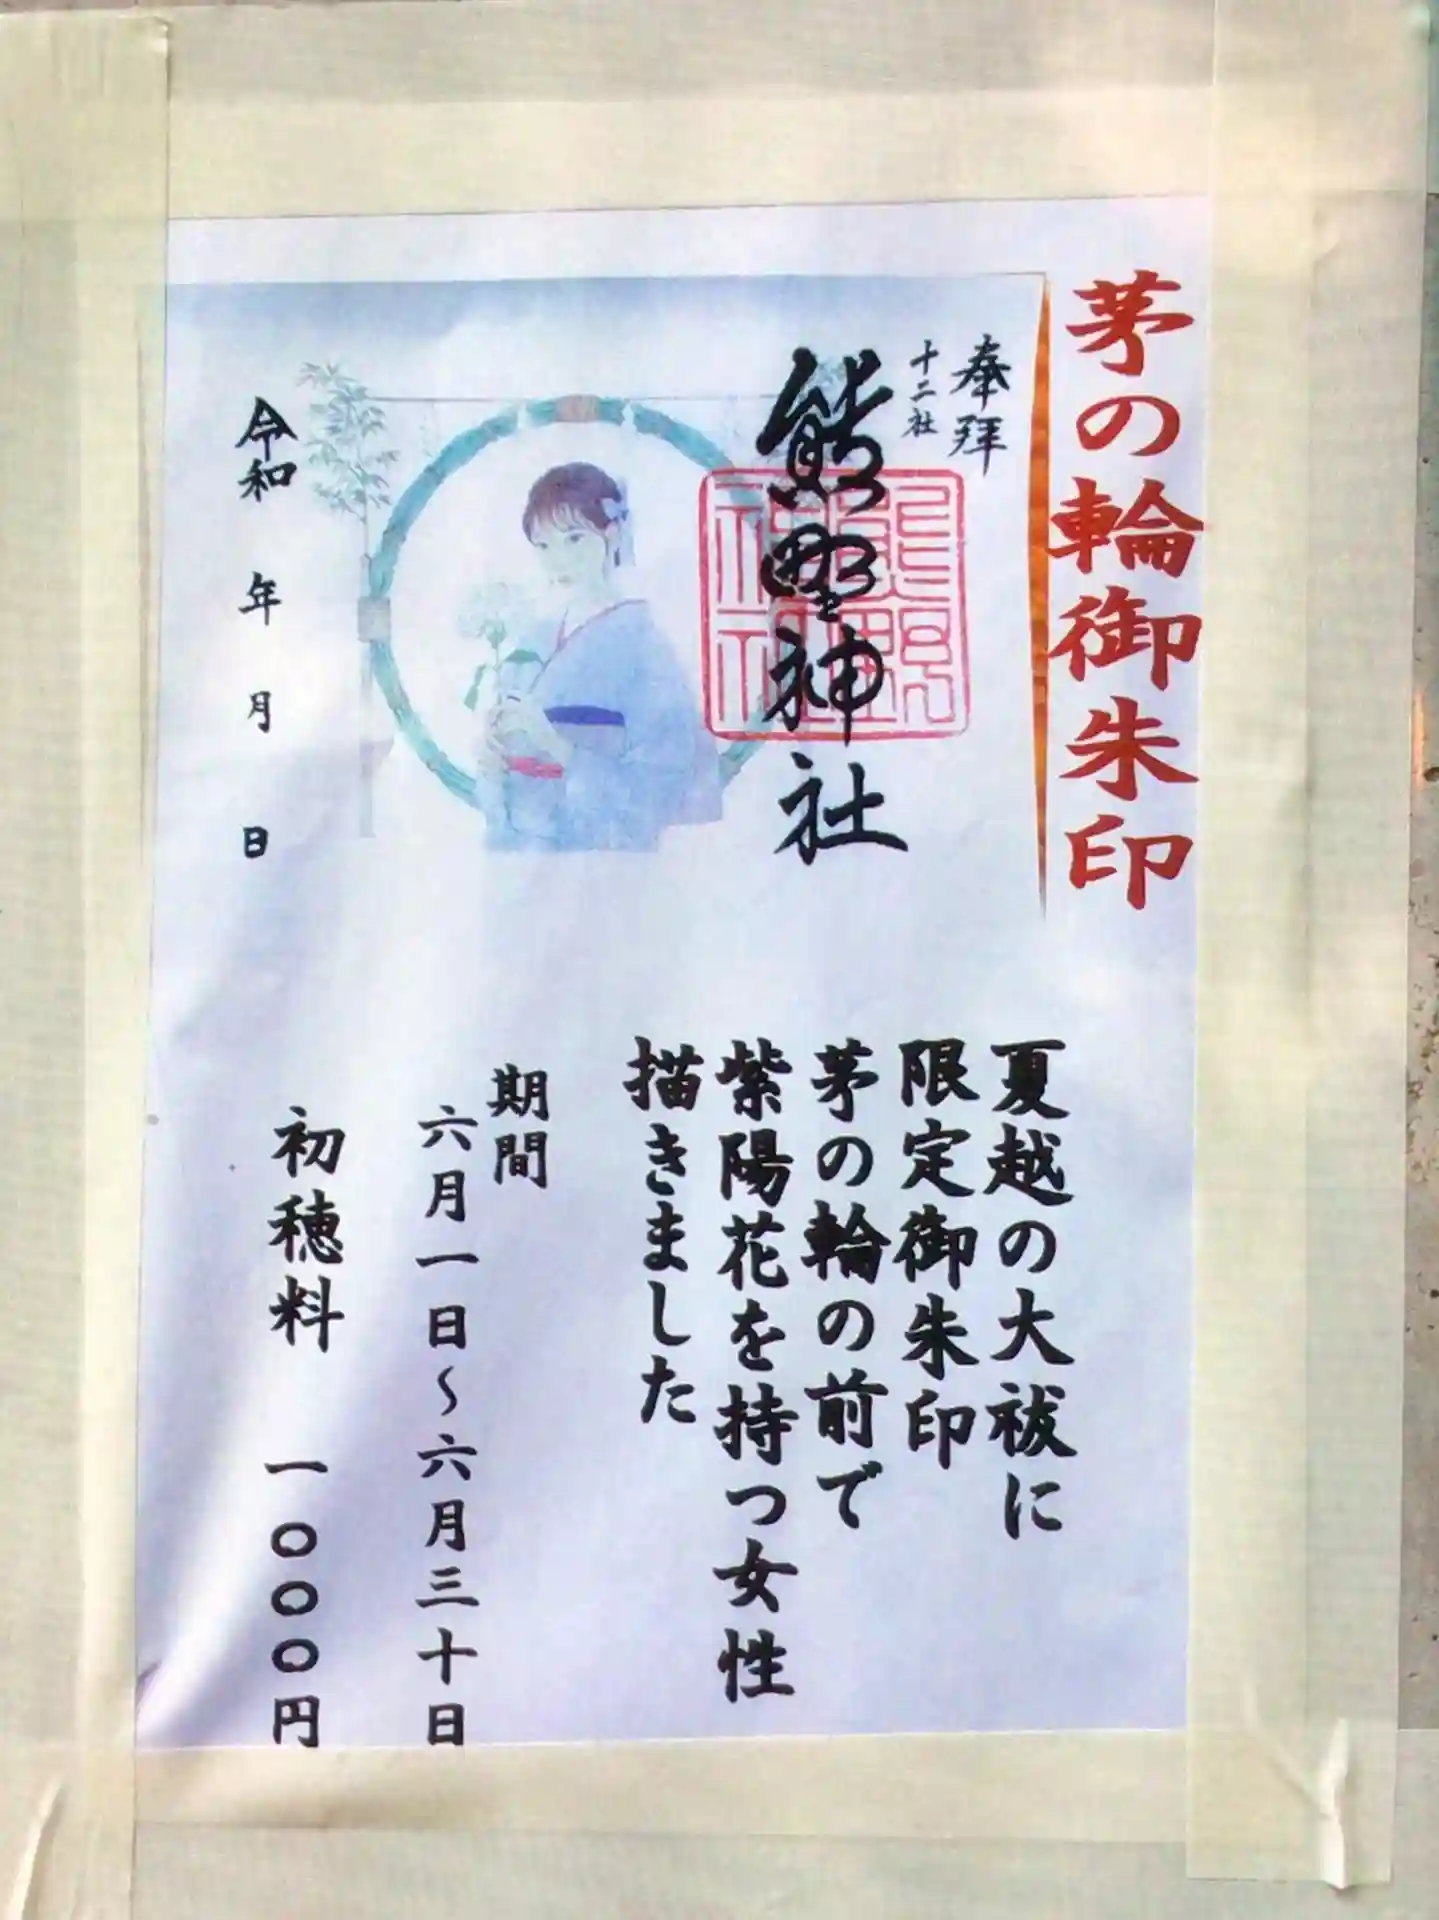 茅の輪御朱印
奉拝
十二社
熊野神社
熊野
神社
令和 年 月 日
夏越の大祓に
限定御朱印
茅の輪の前で
紫陽花を持つ女性
描きました
期間
六月一日〜六月三十日
初穂料 一〇〇〇円